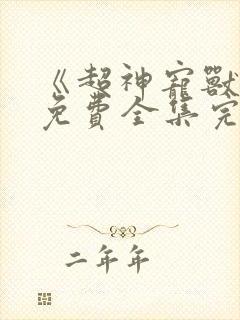 《超神寵獸
免費全集完
二年年